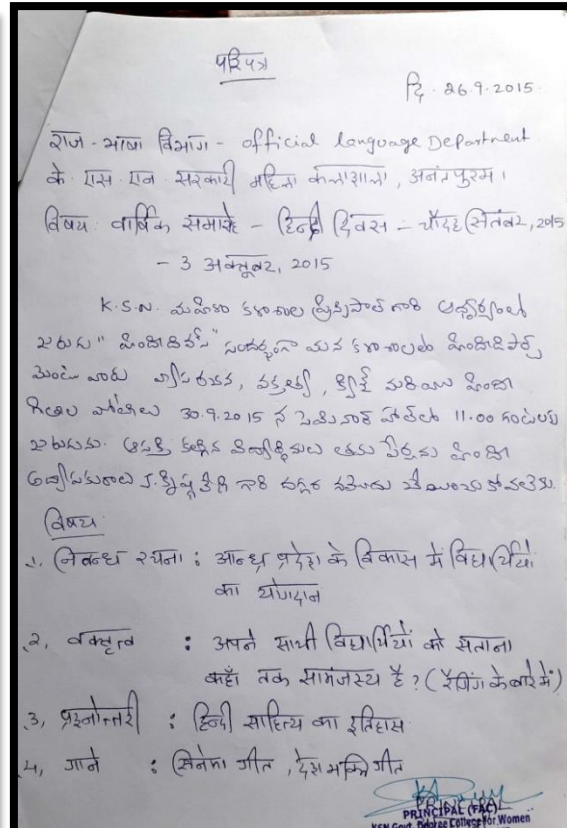 परिपत्र
दि. 26.9.2015.
राज-भाषा विभाग - official language Department
के. एस. एन. सरकारी महिला कलाशाला, अनंतपुरम।
विषय: वार्षिक समारोह - हिन्दी दिवस - चौदह सितंबर, 2015
- 3 अक्तूबर, 2015
K.S.N. మహిళా కళాశాల ప్రిన్సిపాల్ గారి ఆధ్వర్యంలో
జరుగు "హిందీ దివస్" సందర్భంగా మన కళాశాలలో హిందీ డిపార్ట్
మెంటు వారు వ్యాసరచన, వక్తృత్వ, క్విజ్ మరియు హిందీ
గీతాల పోటీలు 30.9.2015 న సెమినార్ హాల్‌లో 11.00 గంటలకు
జరుగును. ఆసక్తి కల్గిన విద్యార్థినులు తమ పేర్లను హిందీ
అధ్యాపకురాలు J. కృష్ణవేణి గారి దగ్గర నమోదు చేయించుకోవలెను.
विषय:
1. निबन्ध रचना : आन्ध्र प्रदेश के विकास में विद्यार्थियों
का योगदान
2, वक्तृत्व : अपने साथी विद्यार्थियों को सताना
कहाँ तक सामंजस्य है? (रैगिंग के बारे में)
3, प्रश्नोत्तरी : हिन्दी साहित्य का इतिहास
4, गाने : सिनेमा गीत, देश भक्ति गीत
PRINCIPAL (FAC)
KSN Govt. Degree College for Women